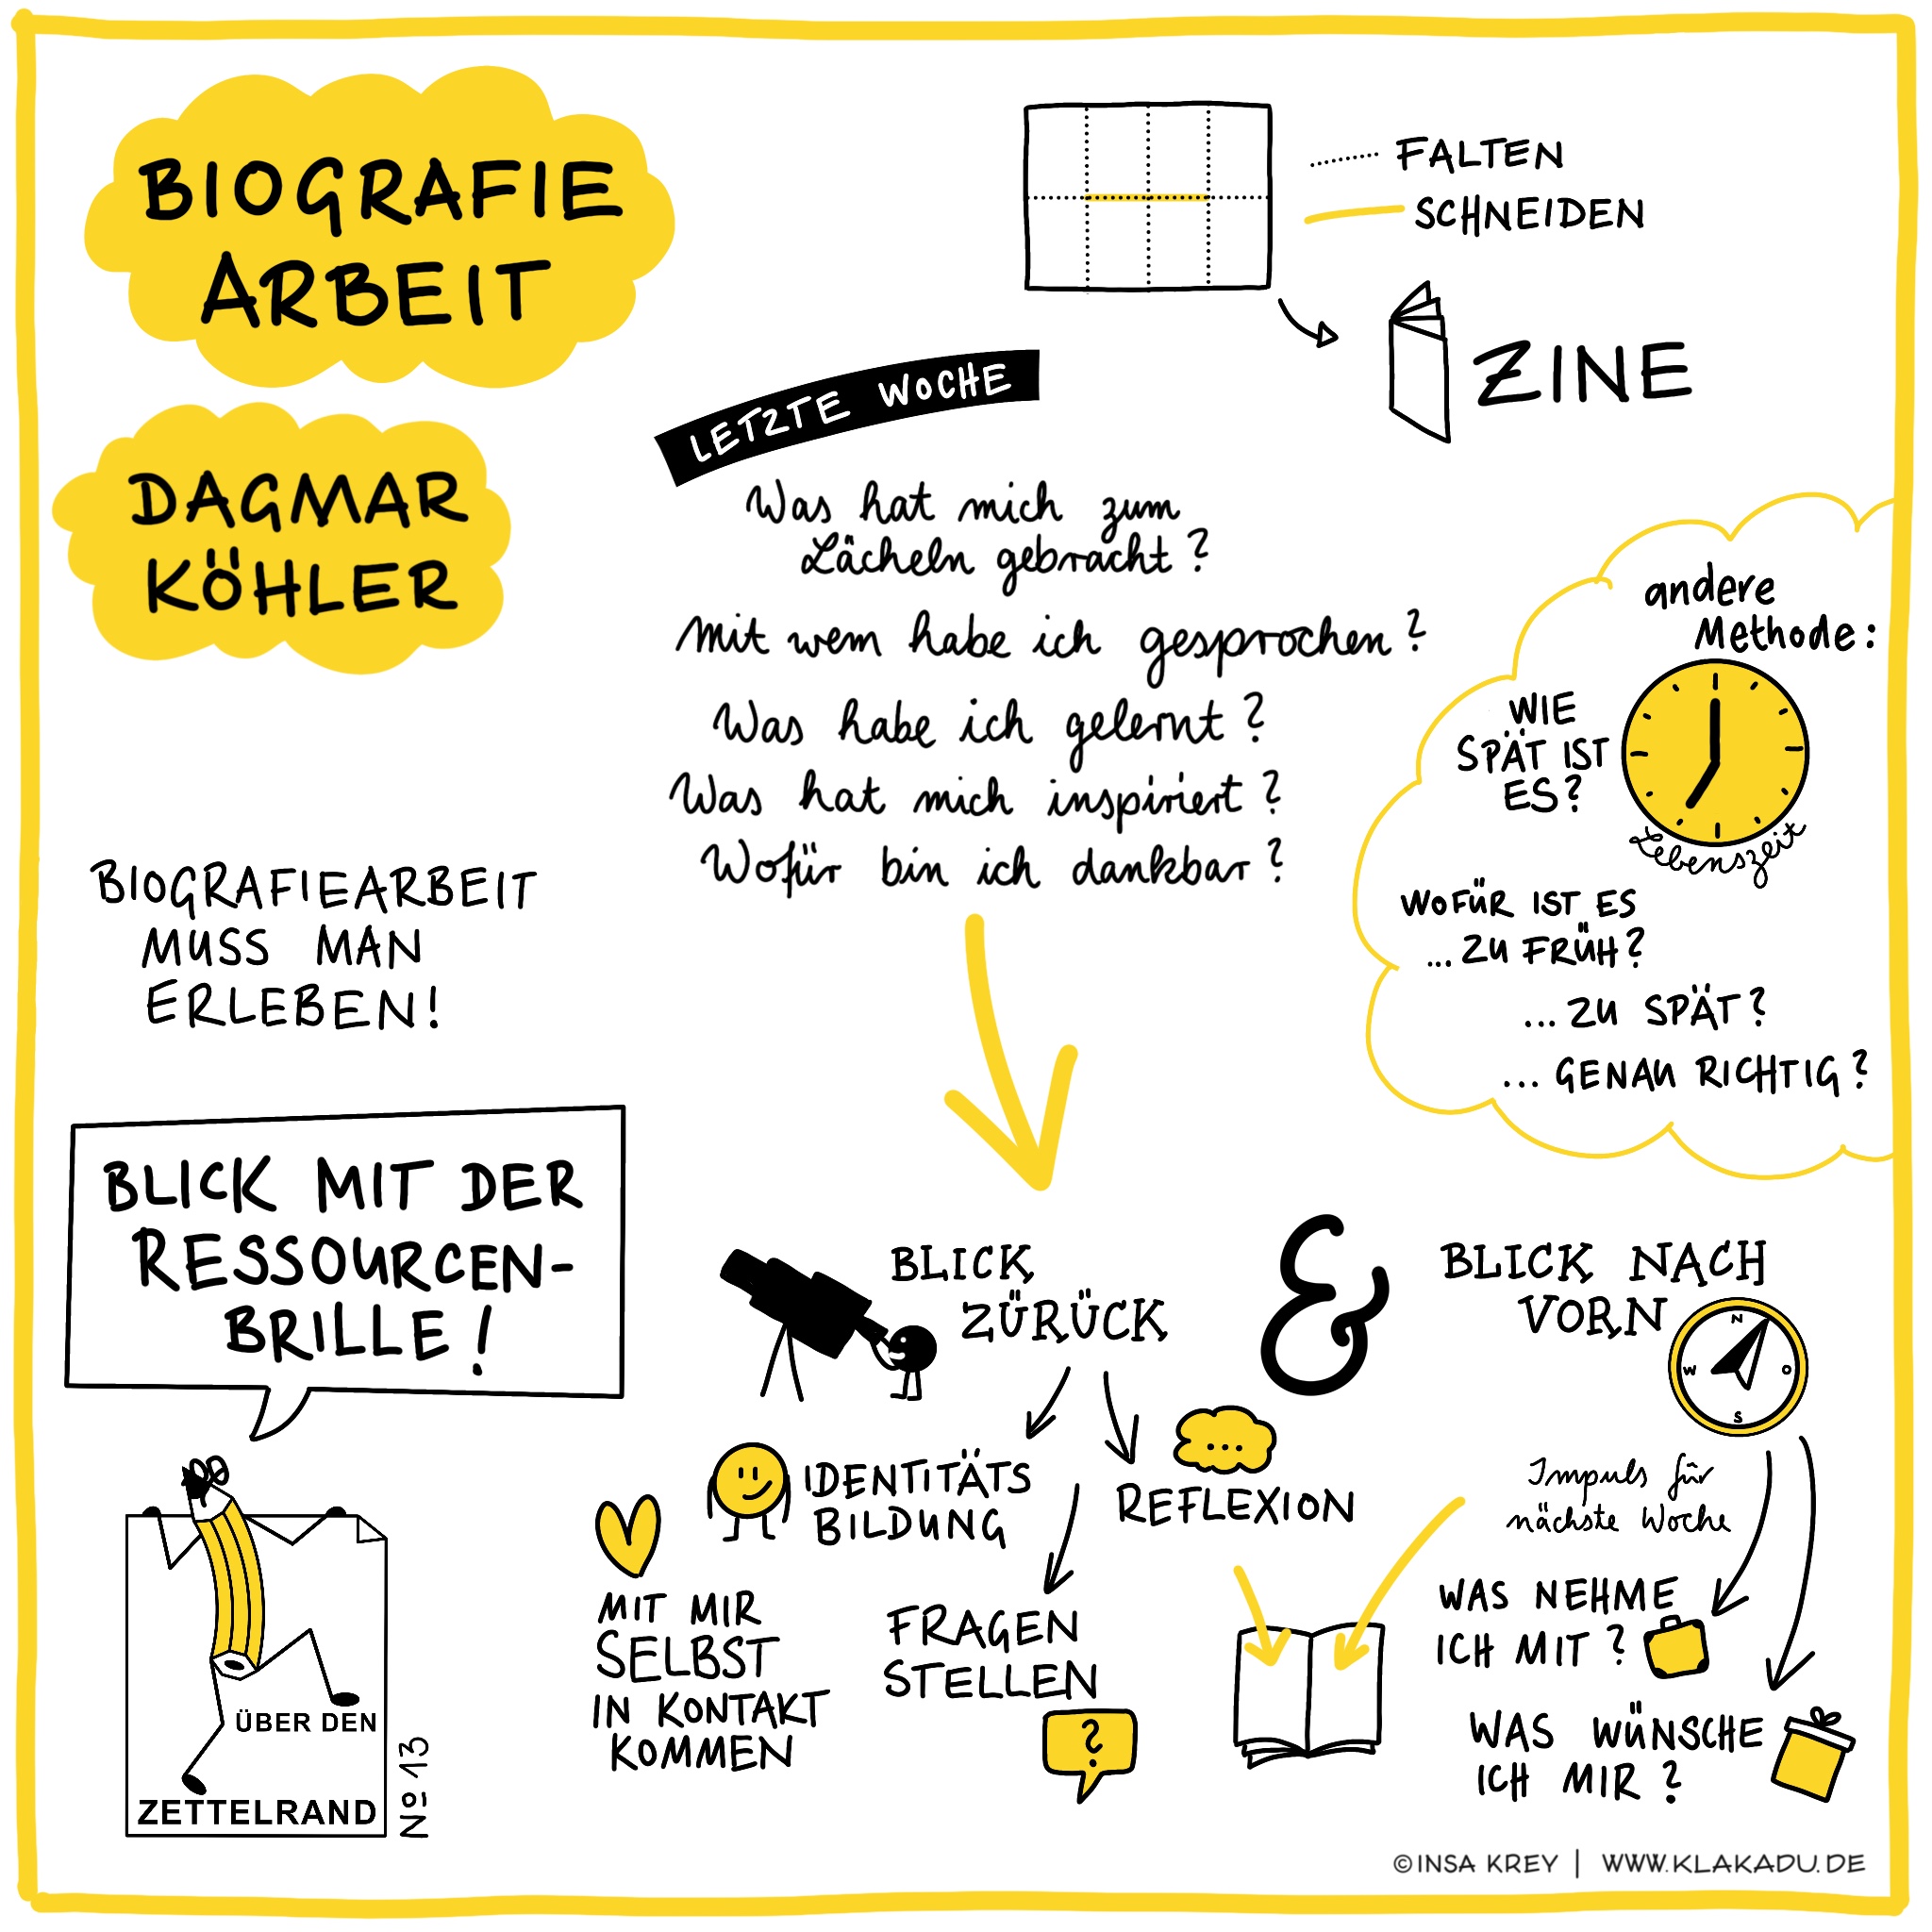 BIOGRAFIE
ARBEIT
DAGMAR
KÖHLER
FALTEN
SCHNEIDEN
ZINE
LETZTE WOCHE
Was hat mich zum
Lächeln gebracht?
Mit wem habe ich gesprochen?
Was habe ich gelernt?
Was hat mich inspiriert?
Wofür bin ich dankbar?
andere
Methode:
WIE
SPÄT IST
ES?
Lebenszeit
WOFÜR IST ES
... ZU FRÜH?
... ZU SPÄT?
... GENAU RICHTIG?
BIOGRAFIEARBEIT
MUSS MAN
ERLEBEN!
BLICK MIT DER
RESSOURCEN-
BRILLE!
ÜBER DEN
ZETTELRAND
No 13
BLICK
ZÜRÜCK
&
BLICK NACH
VORN
N
W O
S
IDENTITÄTS
BILDUNG
...
REFLEXION
MIT MIR
SELBST
IN KONTAKT
KOMMEN
FRAGEN
STELLEN
?
Impuls für
nächste Woche
WAS NEHME
ICH MIT?
WAS WÜNSCHE
ICH MIR?
©INSA KREY | WWW.KLAKADU.DE